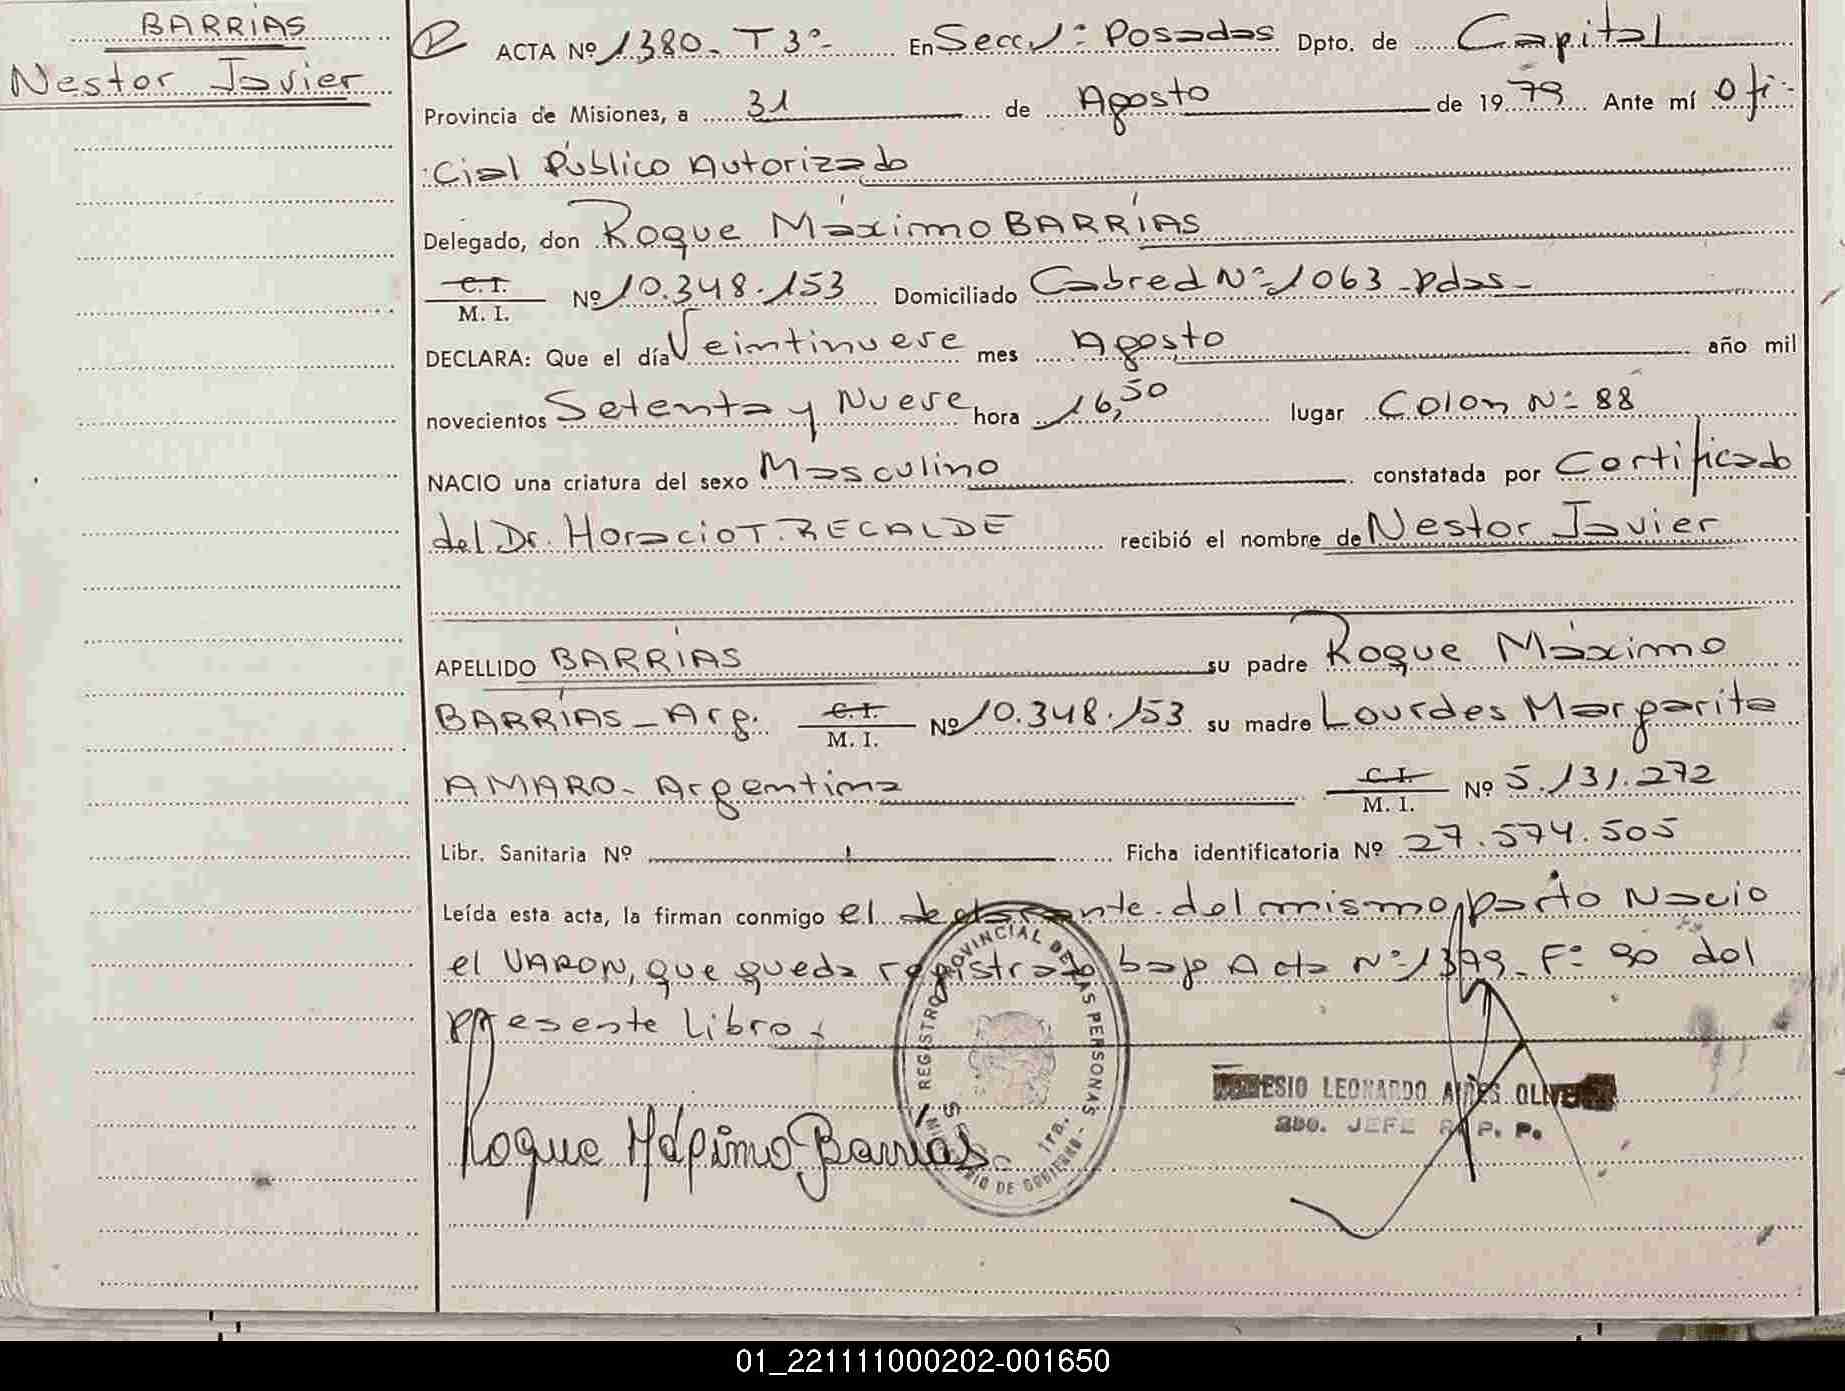 BARRÍAS
Nestor Javier
ACTA Nº 1380. T 3º- En Secc. 1ª Posadas Dpto. de Capital
Provincia de Misiones, a 31 de Agosto de 1979 Ante mí Ofi-
cial Público Autorizado
Delegado, don Roque Máximo BARRÍAS
C.I.
M. I. Nº 10.348.153 Domiciliado Cabred Nº 1063 -Pdas-
DECLARA: Que el día Veintinueve mes Agosto año mil
novecientos Setenta y Nueve hora 16,50 lugar Colon Nº 88
NACIO una criatura del sexo Masculino constatada por Certificado
del Dr. Horacio T. RECALDE recibió el nombre de Nestor Javier
APELLIDO BARRÍAS su padre Roque Máximo
BARRÍAS - Arg. C.I. M. I. Nº 10.348.153 su madre Lourdes Margarita
AMARO - Argentina C.I. M. I. Nº 5.131.272
Libr. Sanitaria Nº Ficha identificatoria Nº 27.574.505
Leída esta acta, la firman conmigo el declarante. del mismo parto Nacio
el VARON, que queda registrado bajo Acta Nº 1379. Fº 90 del
presente Libro.
REGISTRO PROVINCIAL DE LAS PERSONAS
MINISTERIO DE GOBIERNO
1ra.
Roque Máximo Barrías
LEONARDO AIRES
JEFE R. P. P.
01_221111000202-001650